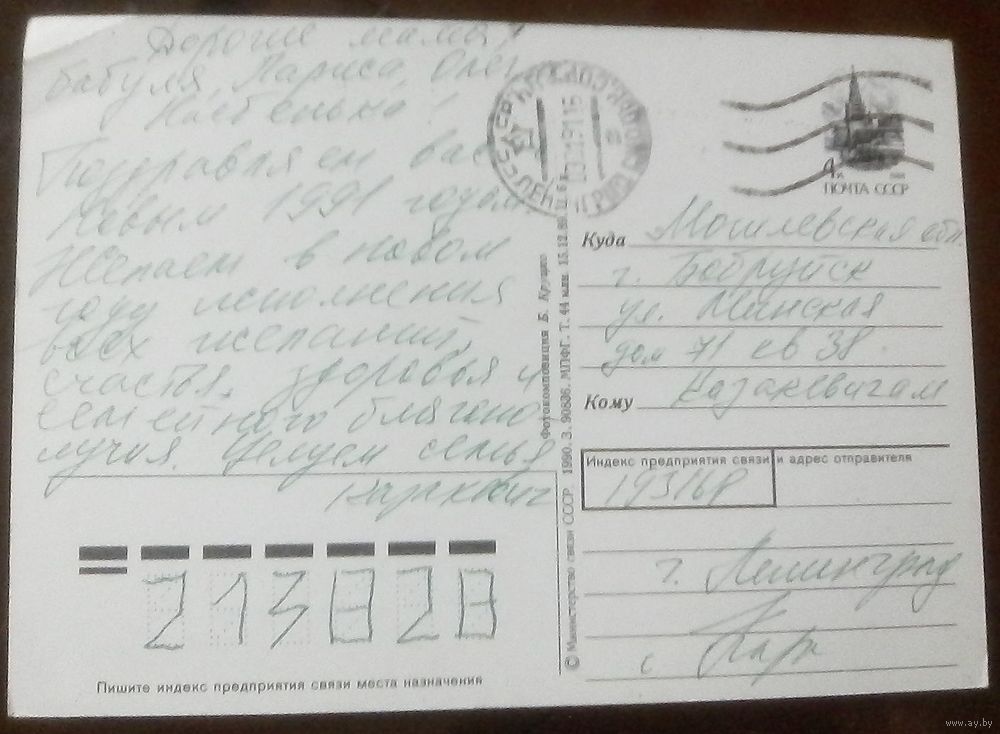 Дорогие мама,
бабуля, Лариса, Олег
Настенька!
Поздравляем вас
Новым 1991 годом.
Желаем в новом
году исполнения
всех желаний,
счастья, здоровья и
семейного благопо
лучия. Целуем семья
Казакевич
213828
Пишите индекс предприятия связи места назначения
© Министерство связи СССР. 1990. З. 90636. МПФГ. Т. 44 млн. 15.12.89. Ц. 6 к.
Фотокомпозиция Б. Круцко
4к
ПОЧТА СССР
Куда Могилевская обл.
г. Бобруйск
ул. Минская
дом 71 кв 38
Кому Казакевичам
Индекс предприятия связи и адрес отправителя
193168
г. Ленинград
www.ay.by